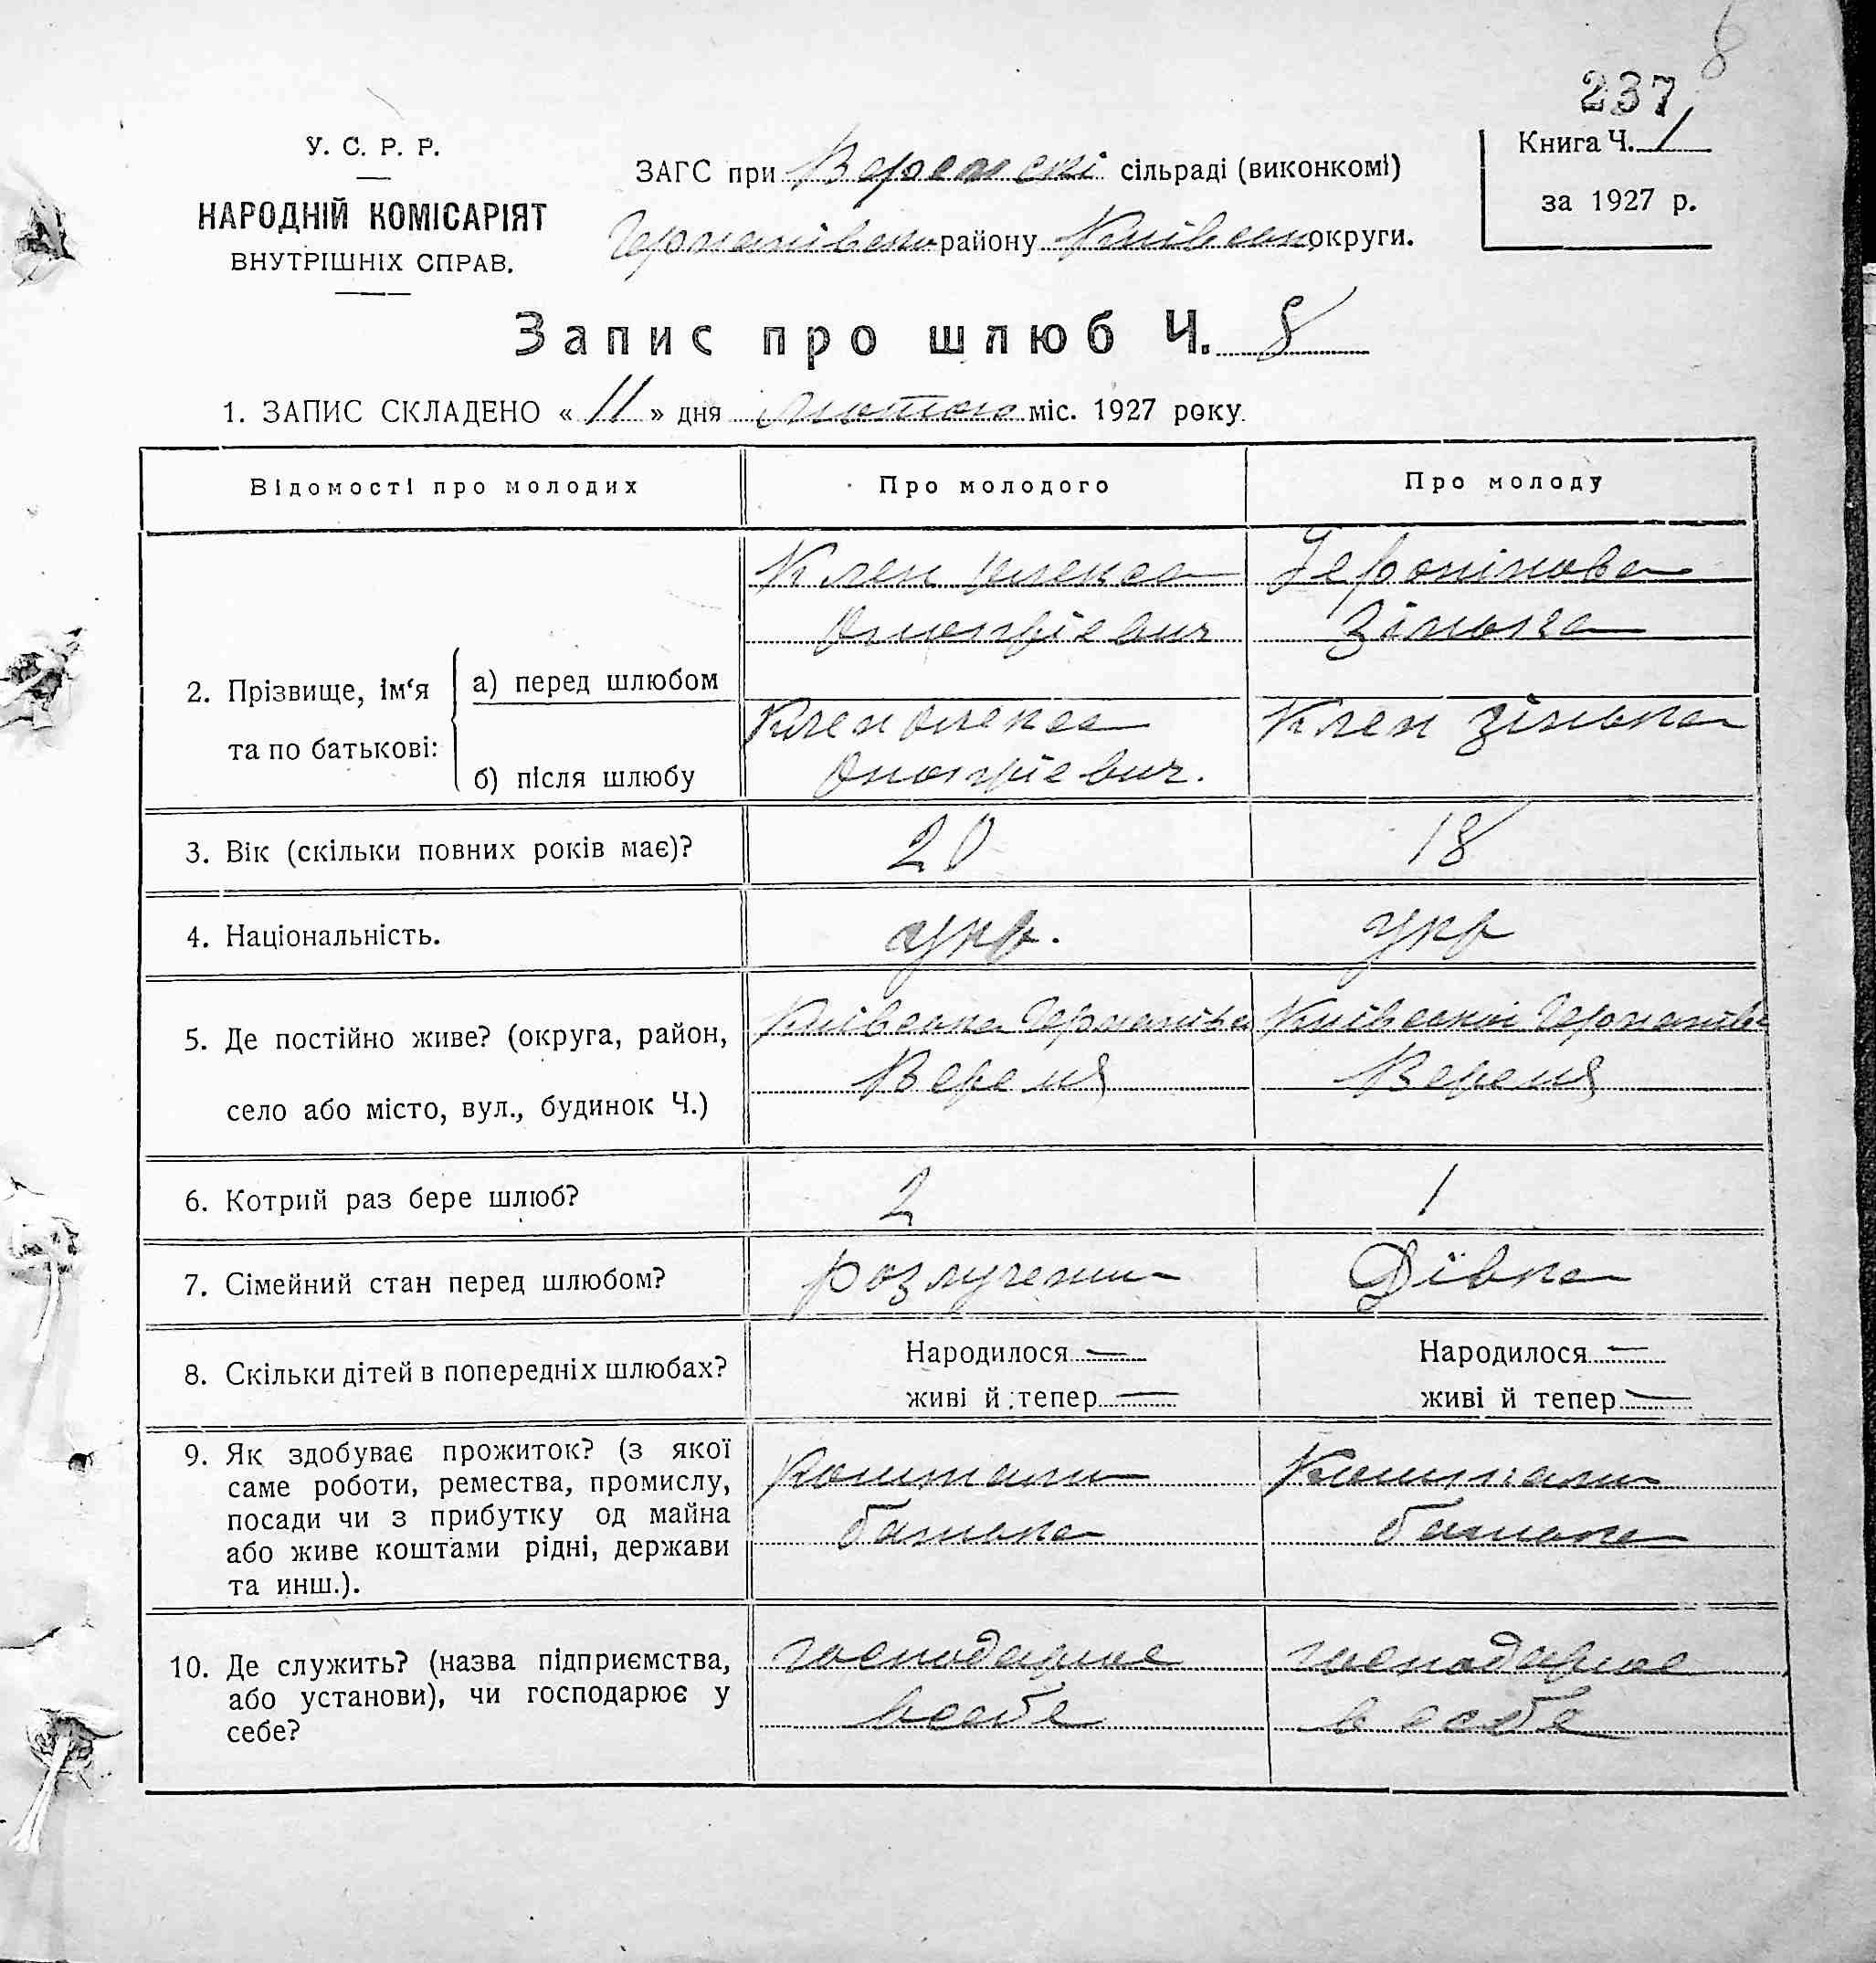 8
237
У. С. Р. Р.
НАРОДНІЙ КОМІСАРІЯТ
ВНУТРІШНІХ СПРАВ.
ЗАГС при Веремскі сільраді (виконкомі)
Германівськ району Київськ округи.
Книга Ч. 1
за 1927 р.
Запис про шлюб Ч. 8
1. ЗАПИС СКЛАДЕНО « 11 » дня лютого міс. 1927 року.
Відомості про молодих Про молодого Про молоду
2. Прізвище, ім‘я та по батькові:
а) перед шлюбом
Клен Олекса
Оношріевич
Зінька
б) після шлюбу
Клен Олекса
Оношріевич.
Клен Зінька
3. Вік (скільки повних років має)? 20 18
4. Національність. укр. укр
5. Де постійно живе? (округа, район,
село або місто, вул., будинок Ч.)
Київська Германівка
Веремя
Київській Германівк
Веремя
6. Котрий раз бере шлюб? 2 1
7. Сімейний стан перед шлюбом? розлучени Дівка
8. Скільки дітей в попередніх шлюбах?
Народилося —
живі й тепер —
Народилося —
живі й тепер —
9. Як здобуває прожиток? (з якої
саме роботи, ремества, промислу,
посади чи з прибутку од майна
або живе коштами рідні, держави
та инш.).
Коштами
батька
Коштами
батька
10. Де служить? (назва підприємства,
або установи), чи господарює у
себе?
господарює
в себе
господарює
в себе